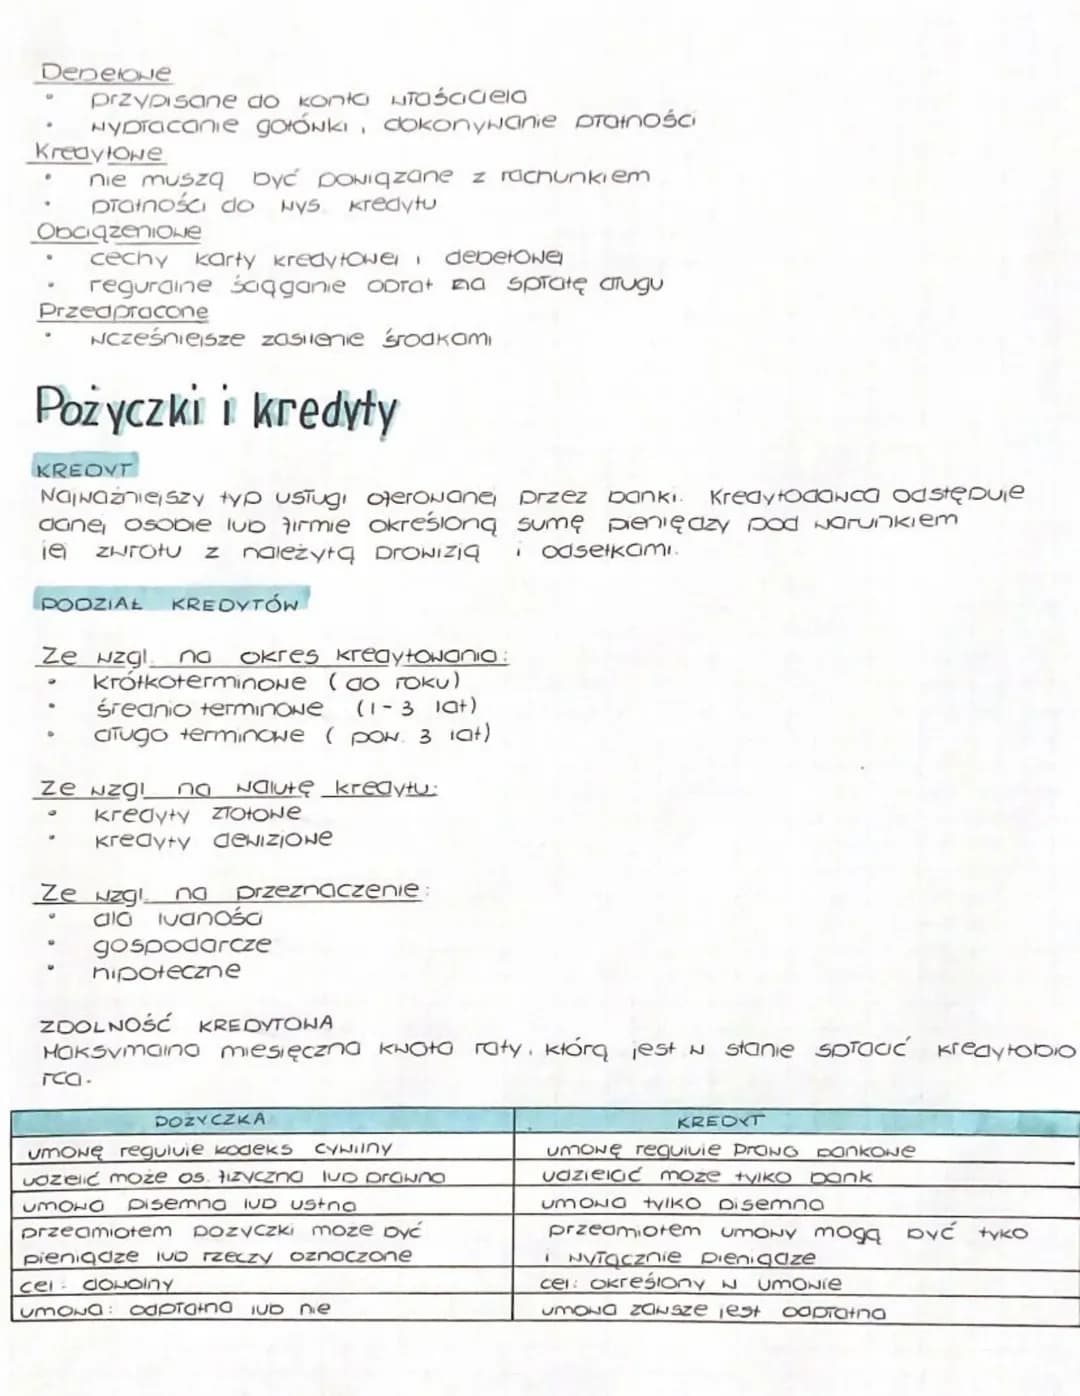 Debetowe
• przypisane do konta właściciela
• wypłacanie gotówki, dokonywanie płatności
Kredytowe
• nie muszą być powiązane z rachunkiem
• płatności do wys. kredytu
Obciążeniowe
• cechy karty kredytowej i debetowej
• regularne ściąganie opłat na spłatę długu
Przedpłacone
• wcześniejsze zasilenie środkami
Pożyczki i kredyty
KREDYT
Najważniejszy typ usługi oferowanej przez banki. Kredytodawca odstępuje
danej osobie lub firmie określoną sumę pieniędzy pod warunkiem
jej zwrotu z należytą prowizją i odsetkami.
PODZIAŁ KREDYTÓW
Ze wzgl. na okres kredytowania:
• krótkoterminowe (do roku)
• średnio terminowe (1-3 lat)
• długo terminowe (pow. 3 lat)
Ze wzgl na walutę kredytu:
• kredyty złotowe
• kredyty dewizjowe
Ze wzgl. na przeznaczenie:
• dla ludności
• gospodarcze
• hipoteczne
ZDOLNOŚĆ KREDYTOWA
Maksymalna miesięczna kwota raty, którą jest w stanie spłacić kredytobio
rca.
POŻYCZKA KREDYT
umowę reguluje kodeks cywilny umowę reguluje prawo bankowe
udzelić może os. fizyczna lub prawna udzielać może tylko bank
umowa pisemna lub ustna umowa tylko pisemna
przedmiotem pożyczki może być przedmiotem umowy mogą być tyko
pieniądze lub rzeczy oznaczone i wyłącznie pieniądze
cel: dowolny cel: określony w umowie
umowa: odpłatna lub nie umowa zawsze jest odpłatna